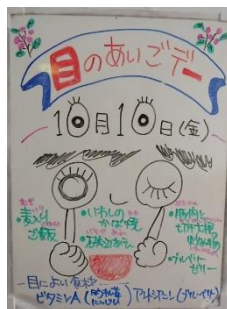 目のあいごデー
10月10日(金)
麦入り
ご飯
・いわしの
かば焼
・豚肉と
切干大根
・ブルーベリー
ゼリー
目によい食材
ビタミンA( にんじん) アントシアニン(ブルーベリー)